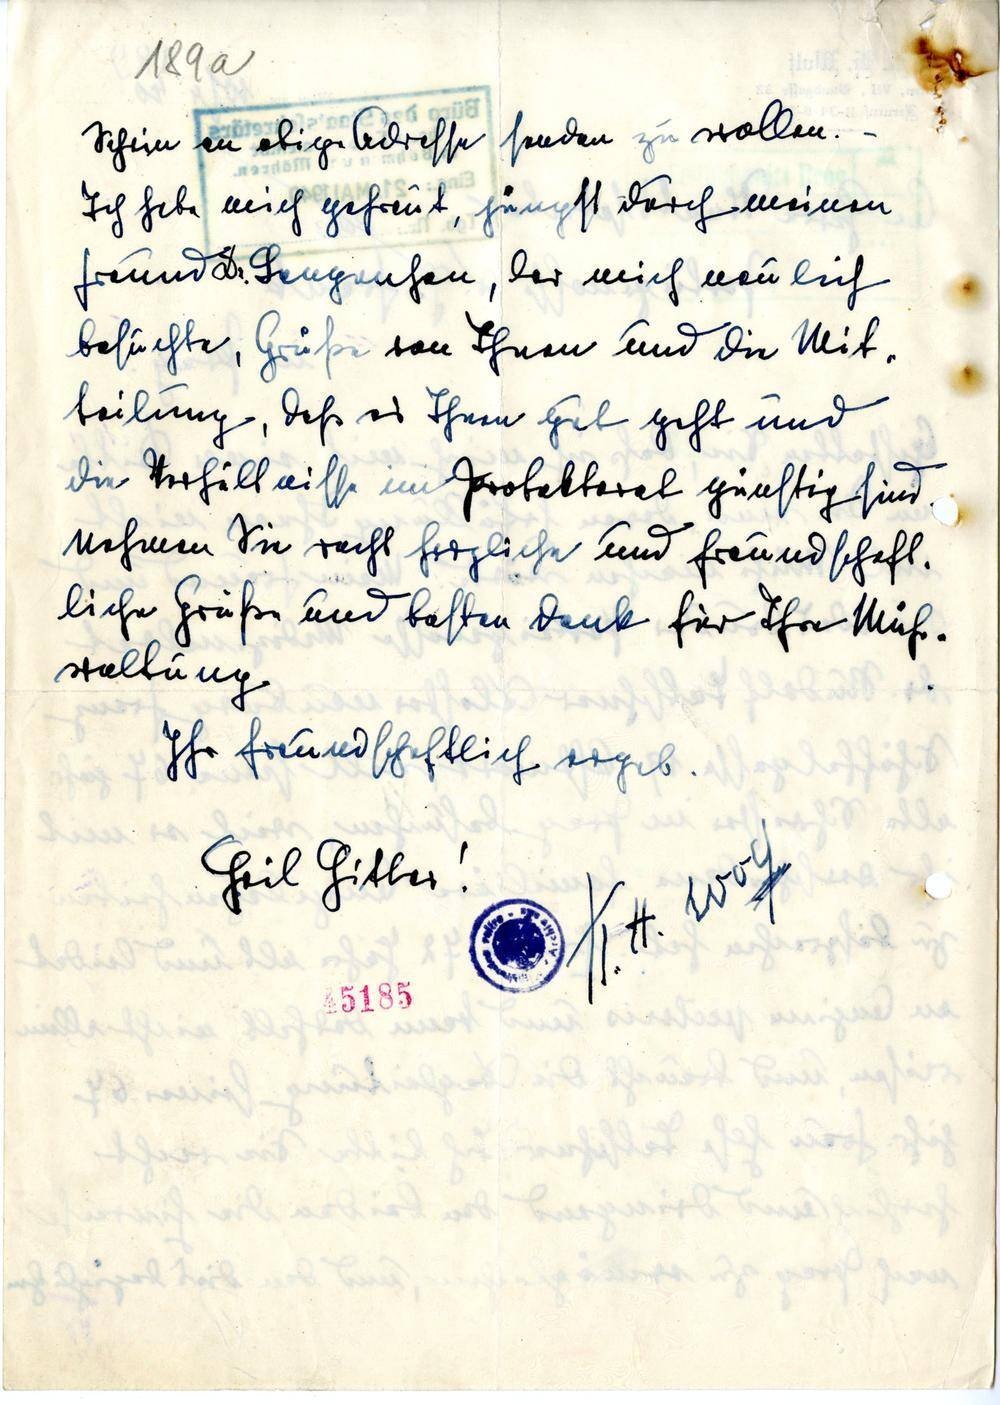 189a
Schein an obige Adresse senden zu wollen. –
Ich habe mich gefreut, jüngst durch meinen
Freund Dr. Langenhan, der mich neulich
besuchte, Grüße von Ihnen und die Mit-
teilung, daß es Ihnen gut geht und
die Verhältnisse im Protektorat günstig sind.
Nehmen Sie recht herzliche und freundschaft-
liche Grüße und besten Dank für Ihre Mühe-
waltung.
Ihr freundschaftlich ergeb.
Heil Hitler!
45185